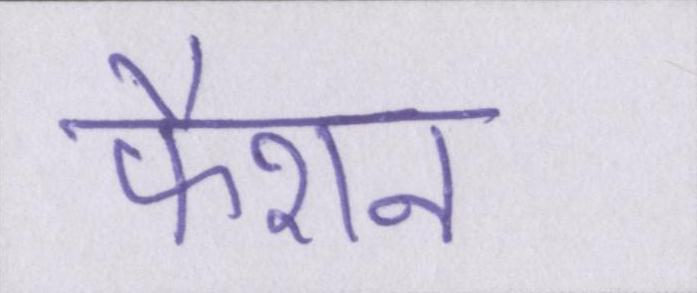 फैशन